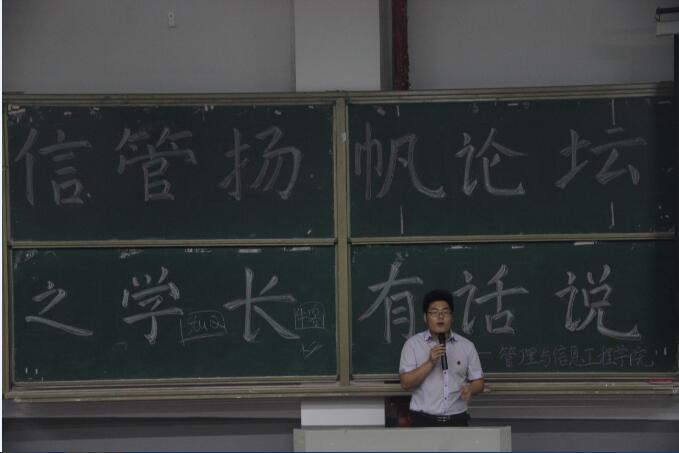 信管扬帆论坛
之学长有话说
管理与信息工程学院